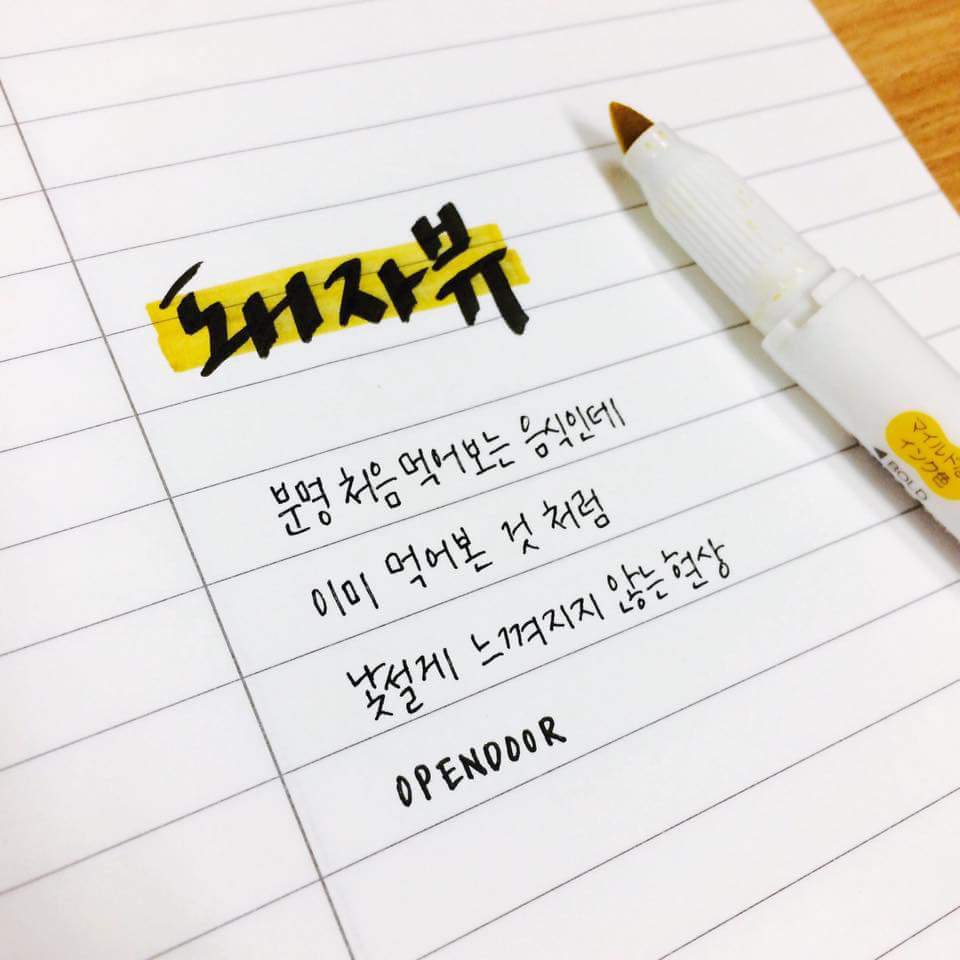 돼자뷰
분명 처음 먹어보는 음식인데
이미 먹어본 것 처럼
낯설게 느껴지지 않는 현상
OPENDOOR
マイルドな
インク色
◀BOLD